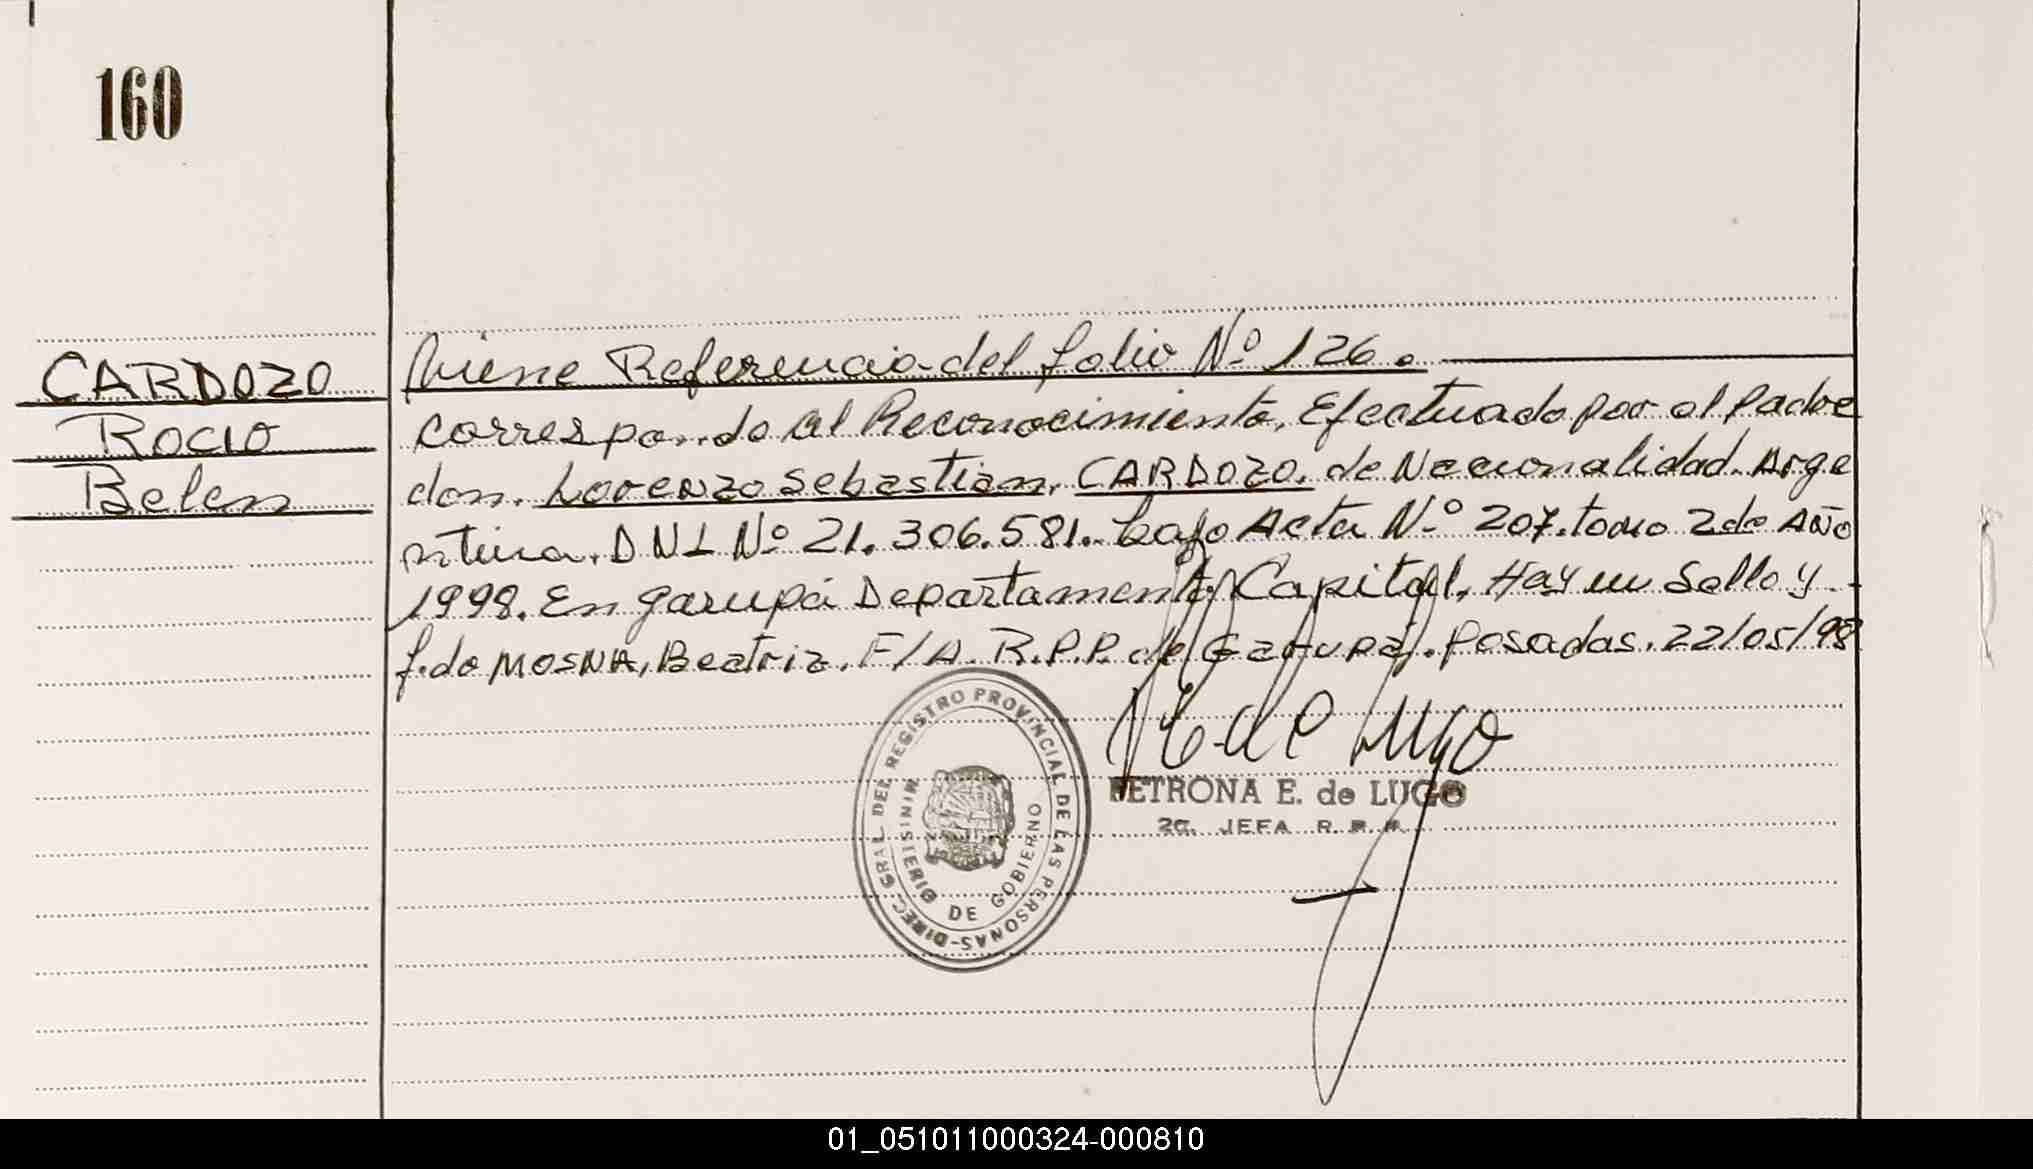 160
CARDOZO
Rocio
Belen
Viene Referencia del folio Nº 126.
Corresponde al Reconocimiento, Efectuado por el Padre
don. Lorenzo Sebastian, CARDOZO, de Nacionalidad Arge
ntina. DNI Nº 21.306.581. bajo Acta Nº 207. tomo 2 de Año
1998. En Garupá Departamento Capital, Hay un Sello y
f.do MOSNA, Beatriz. F/A. R.P.P. de Garupá. Posadas. 22/05/98
E. de Lugo
PETRONA E. de LUGO
2a. JEFA R.P.P.
DIREC. GRAL. DEL REGISTRO PROVINCIAL DE LAS PERSONAS-
MINISTERIO DE GOBIERNO
01_051011000324-000810